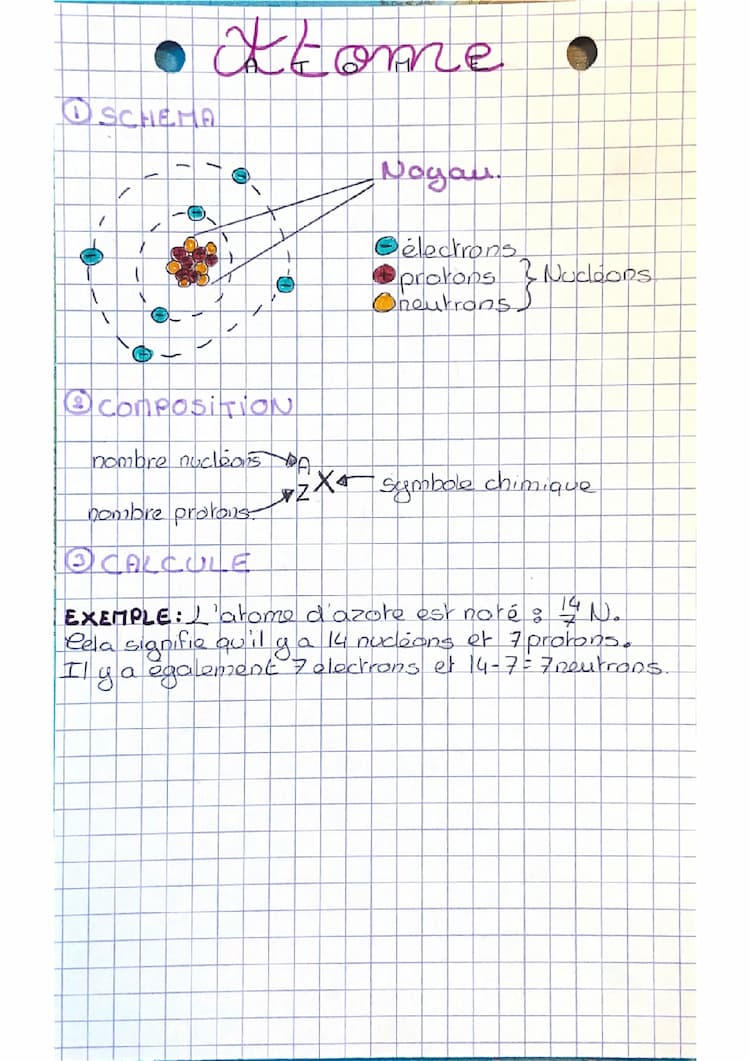 Atome
① SCHEMA
Noyau.
électrons
protons } Nucléons
neutrons
② COMPOSITION
nombre nucléons A
Z X symbole chimique
nombre protons
③ CALCULE
EXEMPLE: L'atome d'azote est noté : 14/7 N.
Cela signifie qu'il y a 14 nucléons et 7 protons.
Il y a également 7 electrons et 14-7=7 neutrons.